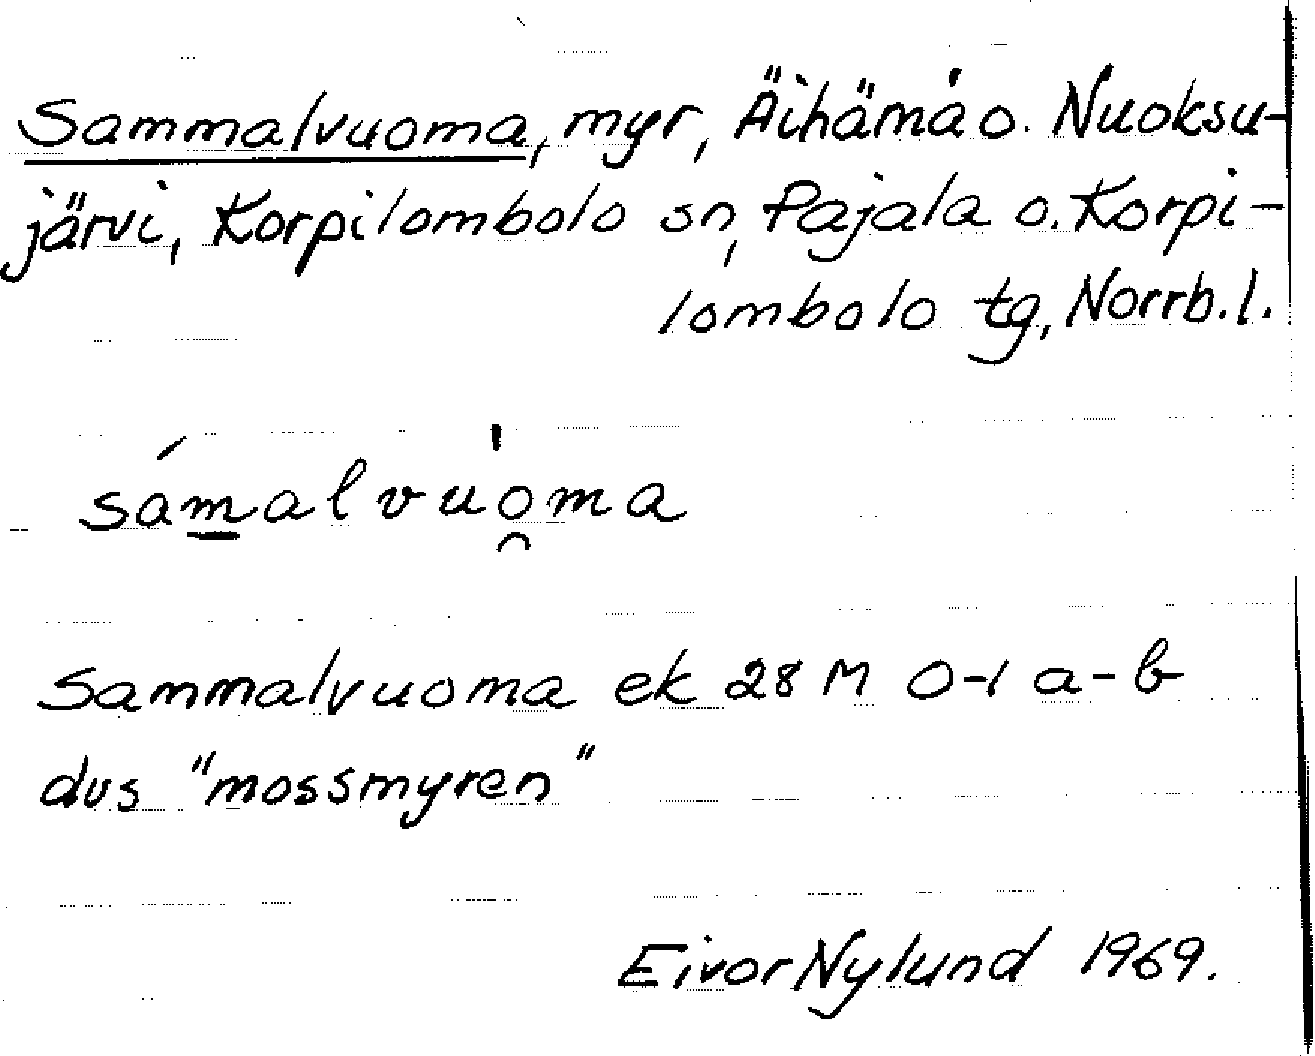 Sammalvuoma, myr, Äihämä o. Nuoksu-
järvi, Korpilombolo sn, Pajala o. Korpi-
lombolo tg, Norrb. l.
sámalvuo̯ma
Sammalvuoma ek 28 M 0-1 a-b
dvs "mossmyren"
Eivor Nylund 1969.